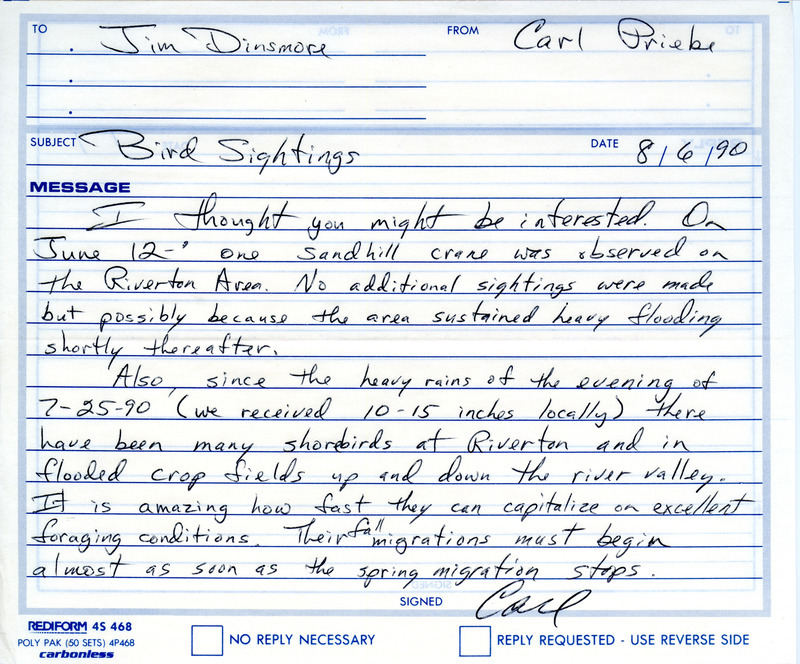 TO Jim Dinsmore FROM Carl Priebe
SUBJECT Bird Sightings DATE 8/6/90
MESSAGE
I thought you might be interested. On
June 12- one Sandhill crane was observed on
the Riverton Area. No additional sightings were made
but possibly because the area sustained heavy flooding
shortly thereafter.
Also, since the heavy rains of the evening of
7-25-90 (we received 10-15 inches locally) there
have been many shorebirds at Riverton and in
flooded crop fields up and down the river valley.
It is amazing how fast they can capitalize on excellent
foraging conditions. Their fall migrations must begin
almost as soon as the spring migration stops.
SIGNED Carl
REDIFORM 4S 468
POLY PAK (50 SETS) 4P468
carbonless
NO REPLY NECESSARY REPLY REQUESTED - USE REVERSE SIDE